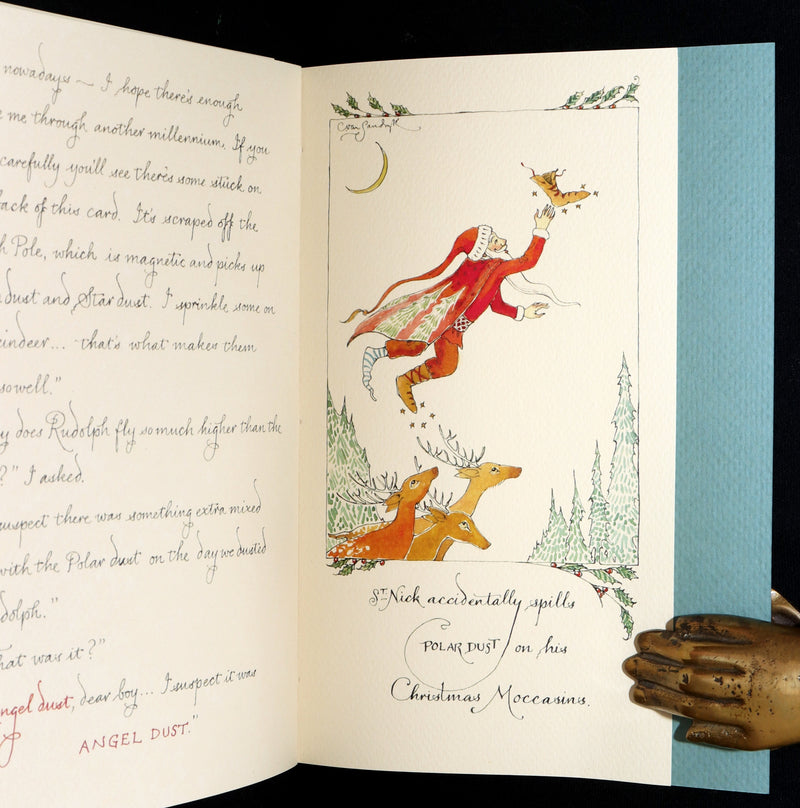 nowadays ~ I hope there's enough
me through another millennium. If you
carefully you'll see there's some stuck on
back of this card. It's scraped off the
Pole, which is magnetic and picks up
dust and Star dust. I sprinkle some on
reindeer... that's what makes them
so well."
does Rudolph fly so much higher than the
?" I asked.
suspect there was something extra mixed
with the Polar dust on the day we dusted
dolph."
hat was it?"
ngel dust, dear boy... I suspect it was
ANGEL DUST."
ST. Nick accidentally spills
POLAR DUST on his
Christmas Moccasins.